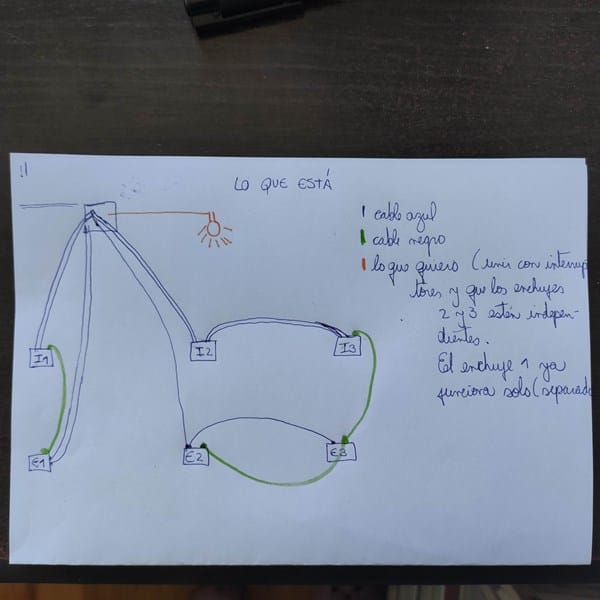 LO QUE ESTÁ
cable azul
cable negro
lo que quiero (unir con interrup
tores y que los enchufes
2 y 3 estén indepen-
dientes.
El enchufe 1 ya
funciona solo (separado
I1
I2
I3
E1
E2
E3